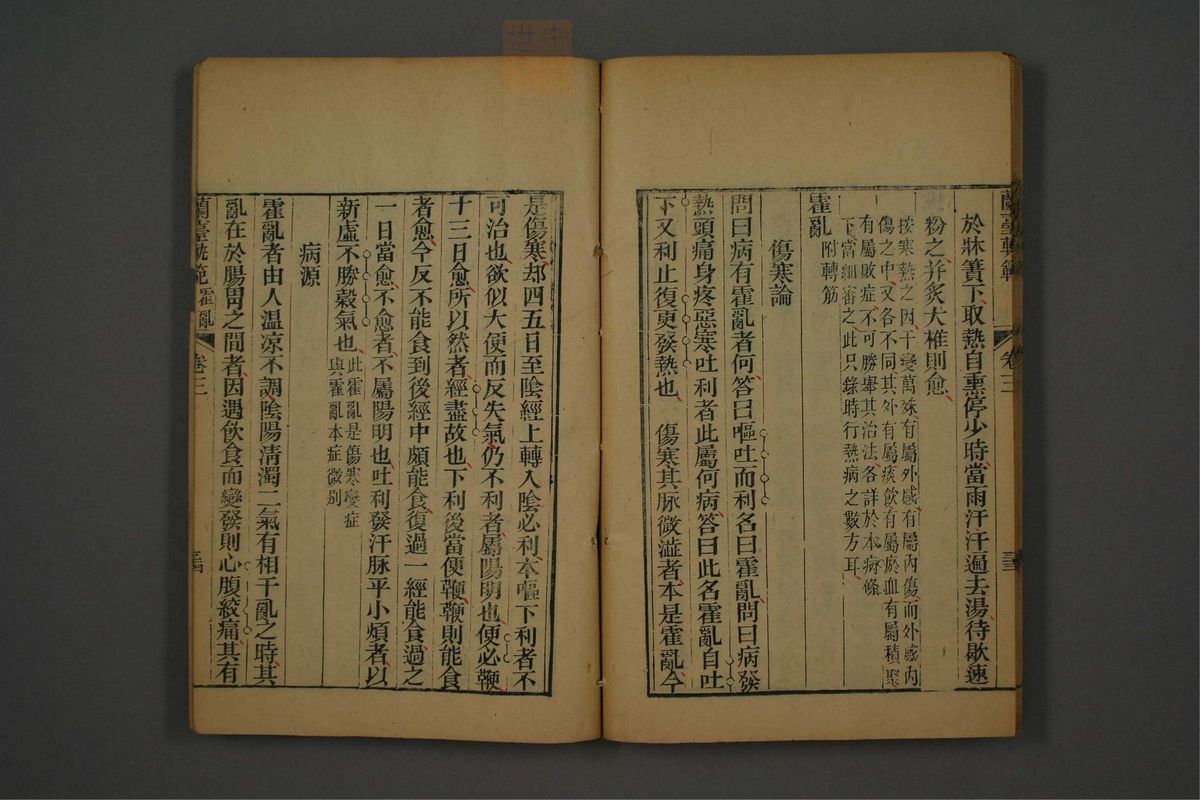 蘭臺軌範
卷三
於牀簀下取熱自熏停少時當雨汗汗過去湯待歇速
粉之并炙大椎則愈
按寒熱之因千變萬殊有屬外感有屬內傷而外感內
傷之中又各不同其外有屬痰飲有屬瘀血有屬積聚
有屬敗症不可勝舉其治法各詳於本病條
下當細審之此只錄時行熱病之數方耳
霍亂附轉筋
傷寒論
問曰病有霍亂者何答曰嘔吐而利名曰霍亂問曰病發
熱頭痛身疼惡寒吐利者此屬何病答曰此名霍亂自吐
下又利止復更發熱也 傷寒其脉微澁者本是霍亂今
是傷寒却四五日至陰經上轉入陰必利本嘔下利者不
可治也欲似大便而反失氣仍不利者屬陽明也便必鞕
十三日愈所以然者經盡故也下利後當便鞕鞕則能食
者愈今反不能食到後經中頗能食復過一經能食過之
一日當愈不愈者不屬陽明也吐利發汗脉平小煩者以
新虛不勝穀氣也此霍亂是傷寒變症
與霍亂本症微別
病源
霍亂者由人温凉不調陰陽清濁二氣有相干亂之時其
亂在於腸胃之間者因遇飲食而變發則心腹絞痛其有
蘭臺軌範
霍亂
卷三